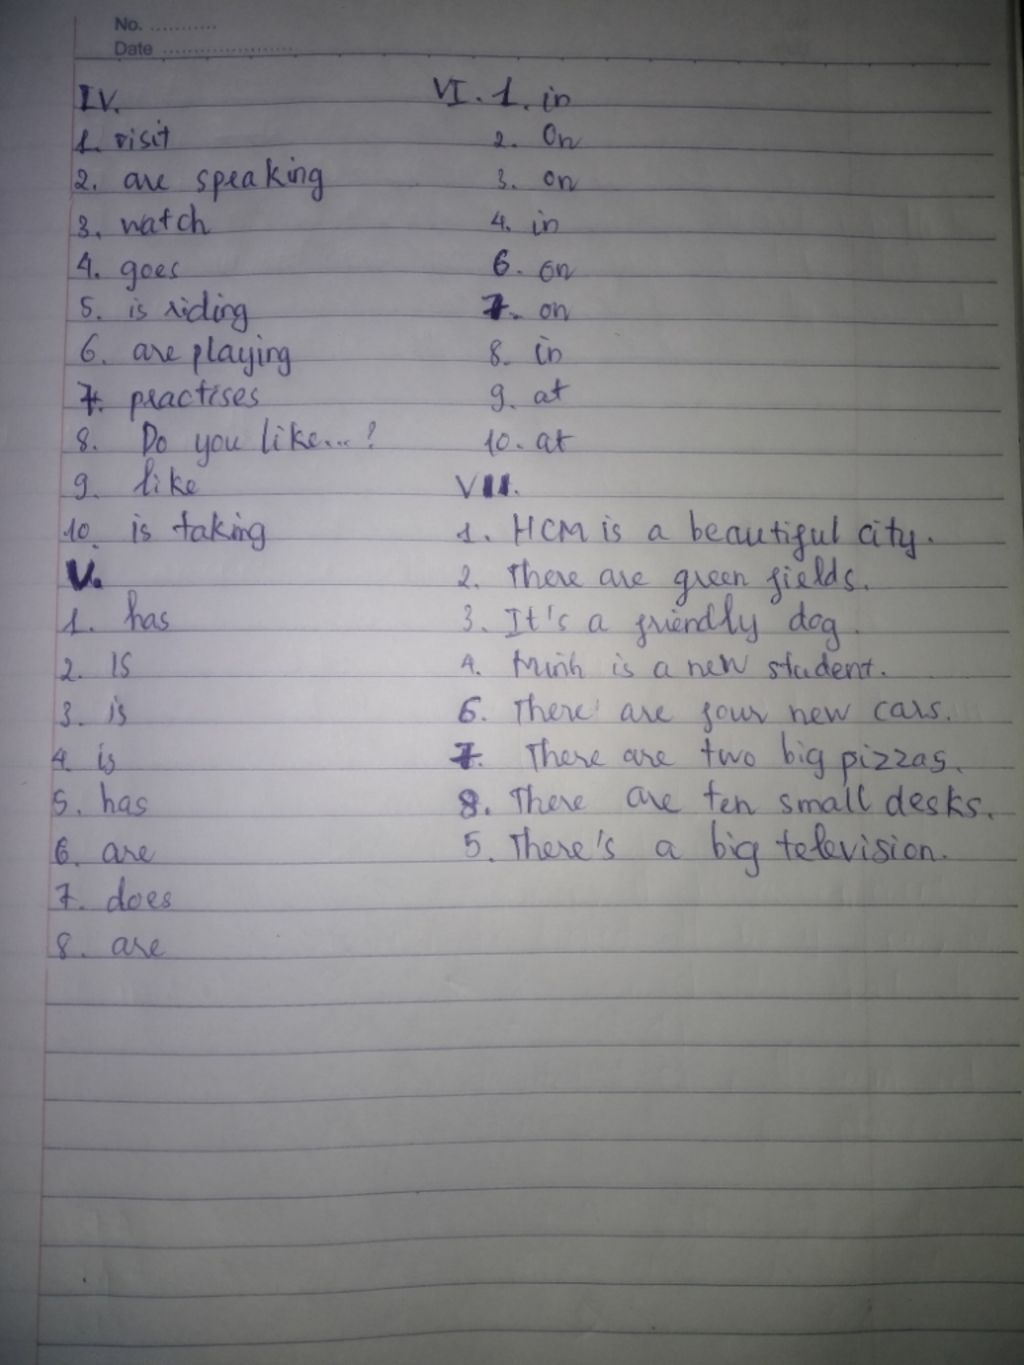 No. ............
Date ........................
IV.
1. visit
2. are speaking
3. watch
4. goes
5. is riding
6. are playing
7. practises
8. Do you like...?
9. like
10. is taking
V.
1. has
2. is
3. is
4. is
5. has
6. are
7. does
8. are
VI. 1. in
2. On
3. on
4. in
6. on
7. on
8. in
9. at
10. at
VII.
1. HCM is a beautiful city.
2. There are green fields.
3. It's a friendly dog.
4. Minh is a new student.
6. There are four new cars.
7. There are two big pizzas.
8. There are ten small desks.
5. There's a big television.